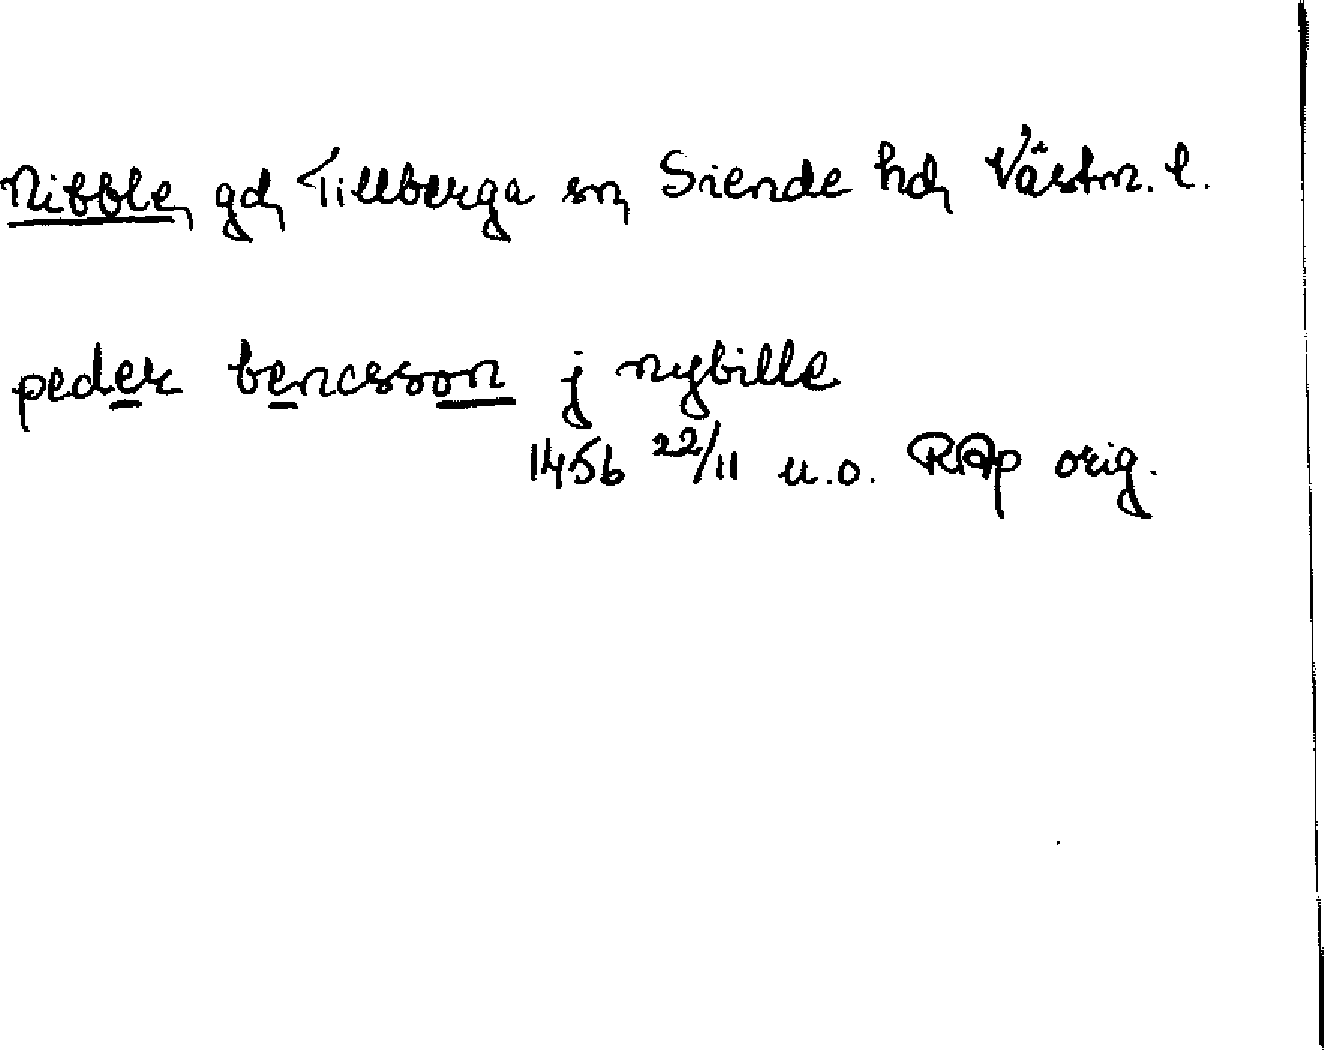 Nibble, gd, Tillberga sn, Siende hd, Västm. l.
peder bencsson j nybille
1456 22/11 u.o. RAp orig.